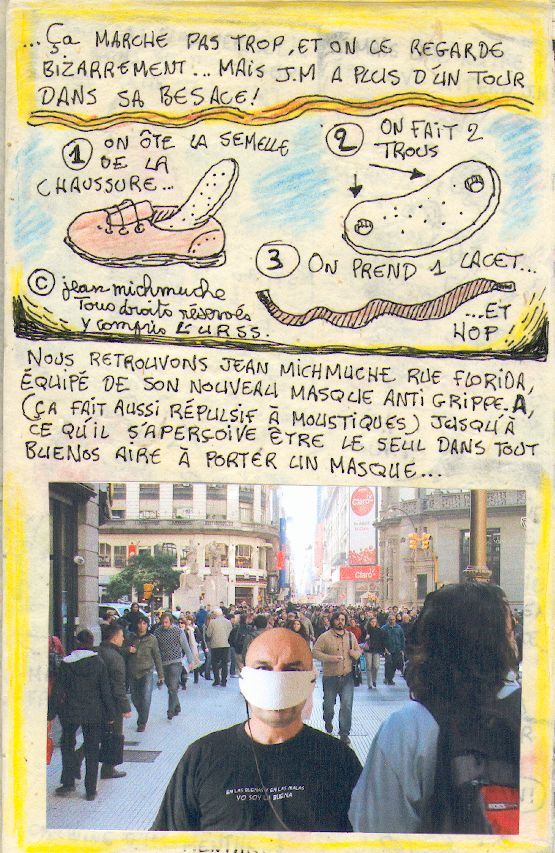 ...ÇA MARCHE PAS TROP, ET ON LE REGARDE
BIZARREMENT... MAIS J.M A PLUS D'UN TOUR
DANS SA BESACE!
1 ON ÔTE LA SEMELLE
DE LA
CHAUSSURE...
2 ON FAIT 2
TROUS
3 ON PREND 1 LACET...
...ET
HOP
© jean michmuche
Tous droits réservés
y compris L'URSS.
NOUS RETROUVONS JEAN MICHMUCHE RUE FLORIDA,
ÉQUIPÉ DE SON NOUVEAU MASQUE ANTI GRIPPE.A,
(ÇA FAIT AUSSI RÉPULSIF À MOUSTIQUES) JUSQU'À
CE QU'IL S'APERÇOIVE ÊTRE LE SEUL DANS TOUT
BUENOS AIRE À PORTER UN MASQUE...
Claro
Claro
EN LAS BUENAS Y EN LAS MALAS
YO SOY LA BUENA